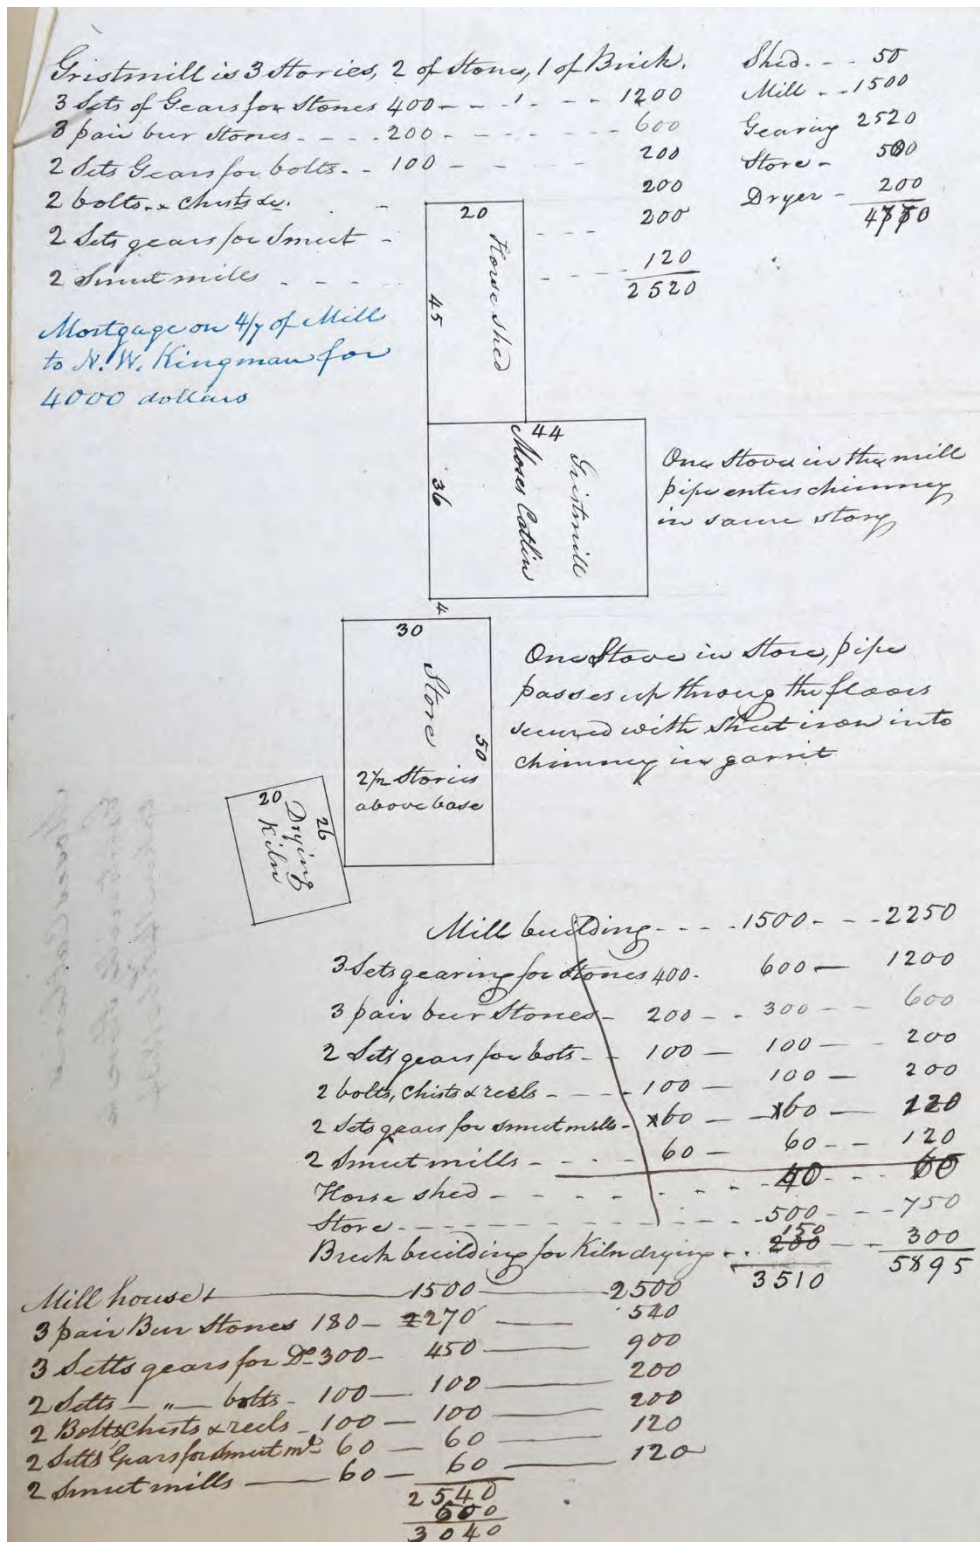 Gristmill is 3 Stories, 2 of Stone, 1 of Brick.
3 Sets of Gears for Stones 400 - - - - 1200
3 pair bur Stones - - - - 200 - - - - - 600
2 Sets Gears for bolts - - 100 - - - 200
2 bolts - & chists &c. - 200
2 Sets gears for Smut - - - - 200
2 Smut mills - - - - - - - 120
2520
Shed - - - 50
Mill - - 1500
Gearing 2520
Store - 500
Dryer - 200
Mortgage on 4/7 of Mill
to N. W. Kingman for
4000 dollars
20
45
Horse shed
44
36
Gristmill
Moses Catlin
One Stove in the mill
pipe enters chimney
in same story
4
30
Store
50
2 1/2 Stories
above base
One Stove in Store, pipe
passes up throug the floors
secured with sheet iron into
chimney in garrit
20
26
Drying
Kiln
Mill building - - - - 1500 - - - 2250
3 Sets gearing for Stones 400 - 600 — 1200
3 pair bur Stones - 200 - - 300 — — 600
2 Sets gears for bots - - 100 — 100 — - 200
2 bolts, chists & reels - - - - 100 — 100 — 200
2 Sets gears for smut mills - 60 — 60 — 120
2 Smut mills - - - - 60 - 60 - - 120
Horse shed - - - - - - - - 40 60
Store - - - - - - - - - - 500 - - - 750
Brick building for Kiln drying - - 200 150 - - 300
3510 5895
Mill house 1500 — 2500
3 pair Bur Stones 180 - 270 — 540
3 Setts gears for Do 300 - 450 — 900
2 Setts — " — bolts - 100 — 100 — 200
2 Bolts Chists & reels - 100 — 100 — 200
2 Setts Gears for smut ml 60 — 60 — 120
2 Smut mills — 60 — 60 — 120
2540
500
3040